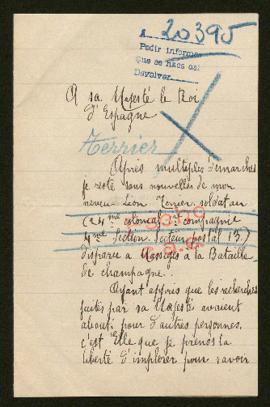 A 20395
Pedir informes
que se hace así
Devolver
A sa Majesté le Roi
d'Espagne
Terrier
Après multiples démarches
je reste sans nouvelles de mon
neveu Léon Terrier soldat au
colonial compagnie
4me section secteur postal 13)
disparu à Massiges à la Bataille
de champagne.
Ayant appris que les recherches
faites par sa Majesté avaient
abouti pour d'autres personnes,
c'est Elle que je prends la
liberté d'implorer pour savoir